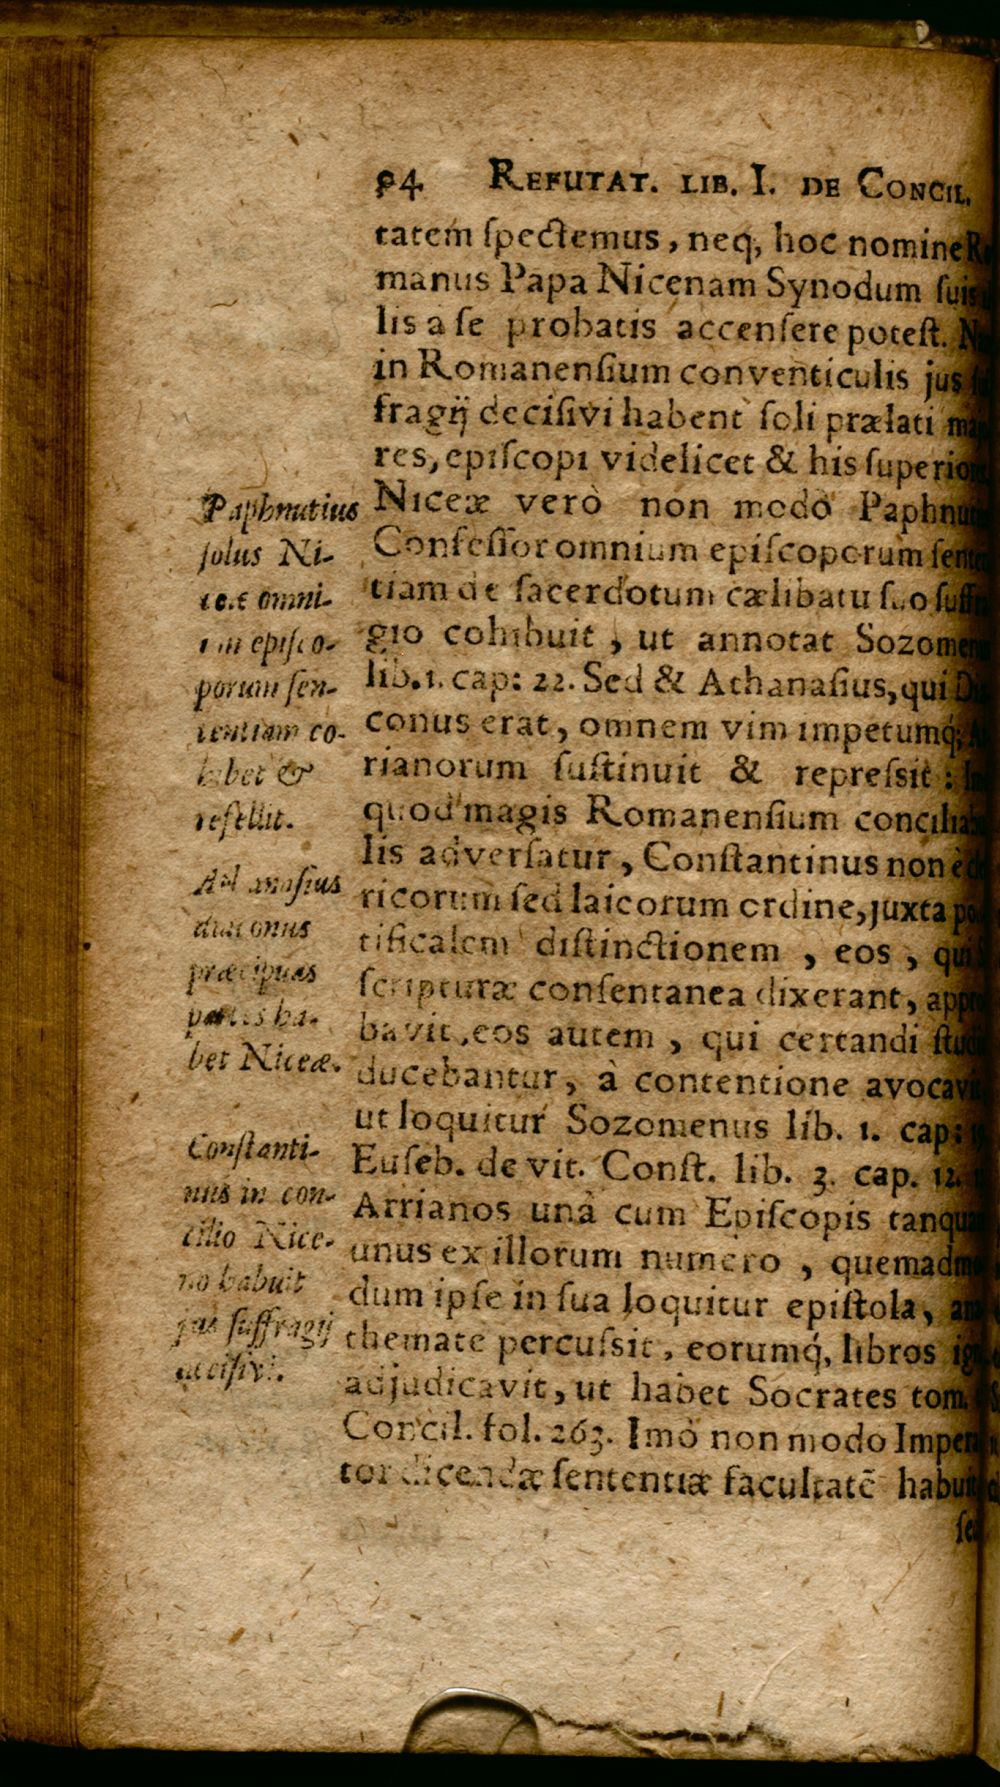 94 REFUTAT. LIB. I. DE CONCIL.
tatem ſpectemus, neq; hoc nomine Ro
manus Papa Nicenam Synodum ſuis
lis a ſe probatis accenſere poteſt.
in Romanenſium conventiculis jus
fragij deciſivi habent ſoli prælati
res, epiſcopi videlicet & his ſuperio
Niceæ verò non modò Paphnu
Confeſſor omnium epiſcoporum ſen
tiam de ſacerdotum cælibatu ſuo ſuff
gio cohibuit, ut annotat Sozomen
lib. 1. cap: 22. Sed & Athanaſius, qui
conus erat, omnem vim impetumq́;
rianorum ſuſtinuit & repreſsit:
quod magis Romanenſium concilia
lis adverſatur, Conſtantinus non è
ricorum ſed laicorum ordine, juxta
tificalem diſtinctionem, eos, qui
ſcripturæ conſentanea dixerant, app
bavit, eos autem, qui certandi ſtud
ducebantur, à contentione avocavi
ut loquitur Sozomenus lib. 1. cap:
Euſeb. de vit. Conſt. lib. 3. cap. 12.
Arrianos unâ cum Epiſcopis tanqu
unus ex illorum numero, quemadm
dum ipſe in ſua loquitur epiſtola,
themate percuſsit, eorumq́, libros
adjudicavit, ut habet Socrates tom.
Concil. fol. 263. Imò non modo Imper
tor dicendæ ſententiæ facultatē habuit
ſe
Paphnutius
ſolus Ni-
ceæ omni-
um epiſco-
porum ſen-
tentiam co-
hibet &
refellit.
Athanaſius
diaconus
præcipuas
partes ha-
bet Niceæ.
Conſtanti-
nus in con-
cilio Nice-
no habuit
jus ſuffragij
deciſivi.